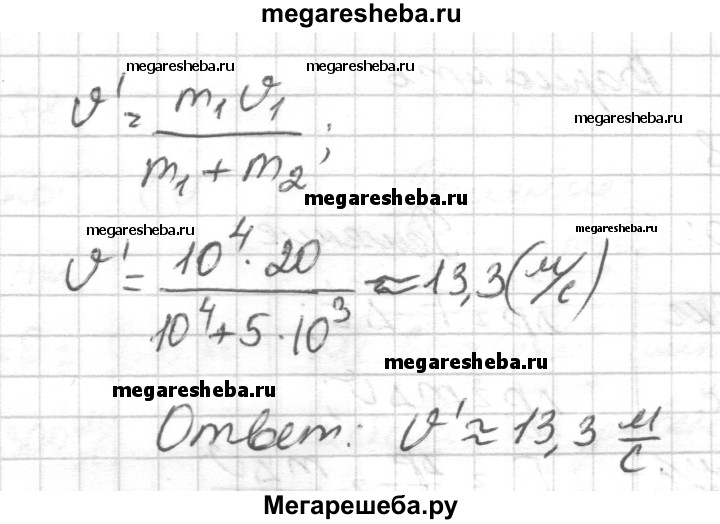 megaresheba.ru
megaresheba.ru megaresheba.ru
megaresheba.ru
ϑ' = m₁ϑ₁ / (m₁ + m₂);
megaresheba.ru
megaresheba.ru megaresheba.ru
ϑ' = 10⁴ · 20 / (10⁴ + 5 · 10³) ≈ 13,3 (м/с)
megaresheba.ru
megaresheba.ru
Ответ: ϑ' ≈ 13,3 м/с.
Мегарешеба.ру